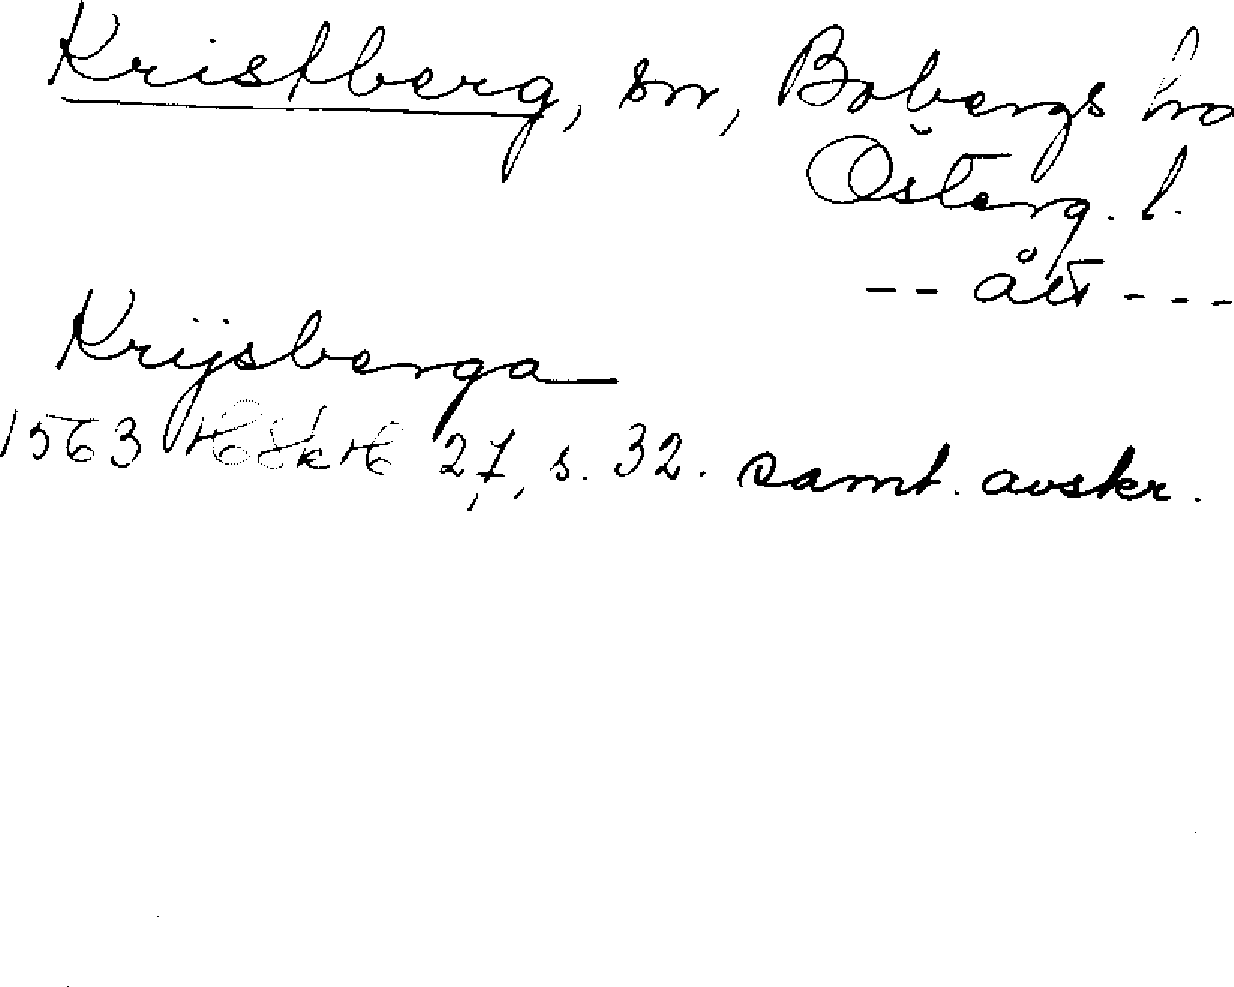 Kristberg, sn, Bobergs hd
Österg. l.
-- ått ---
Krijsberga
1563 HSkH 27, s. 32. samt. avskr.